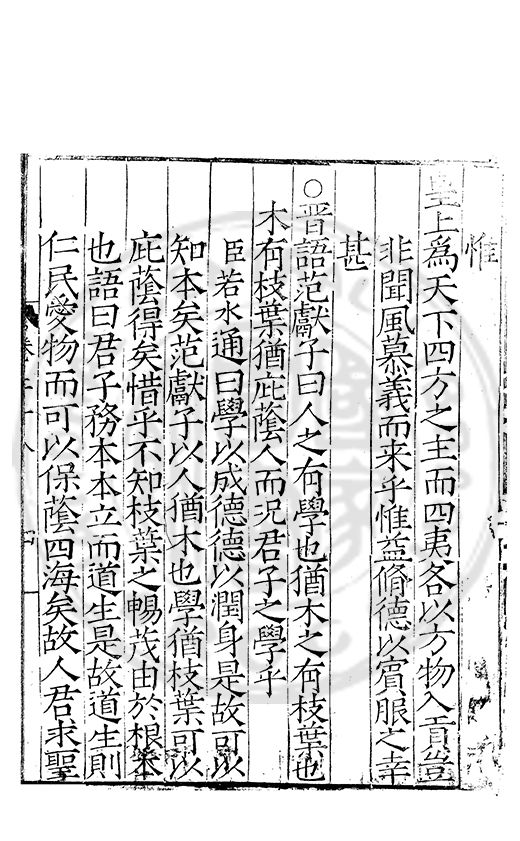 惟
皇上為天下四方之主而四夷各以方物入貢豈
非聞風慕義而来乎惟益脩德以賓服之幸
甚
○晋語范獻子曰人之有學也猶木之有枝葉也
木有枝葉猶庇蔭人而況君子之學乎
臣若水通曰學以成德德以潤身是故可以
知本矣范獻子以人猶木也學猶枝葉可以
庇蔭得矣惜乎不知枝葉之暢茂由於根本
也語曰君子務本本立而道生是故道生則
仁民愛物而可以保蔭四海矣故人君求聖